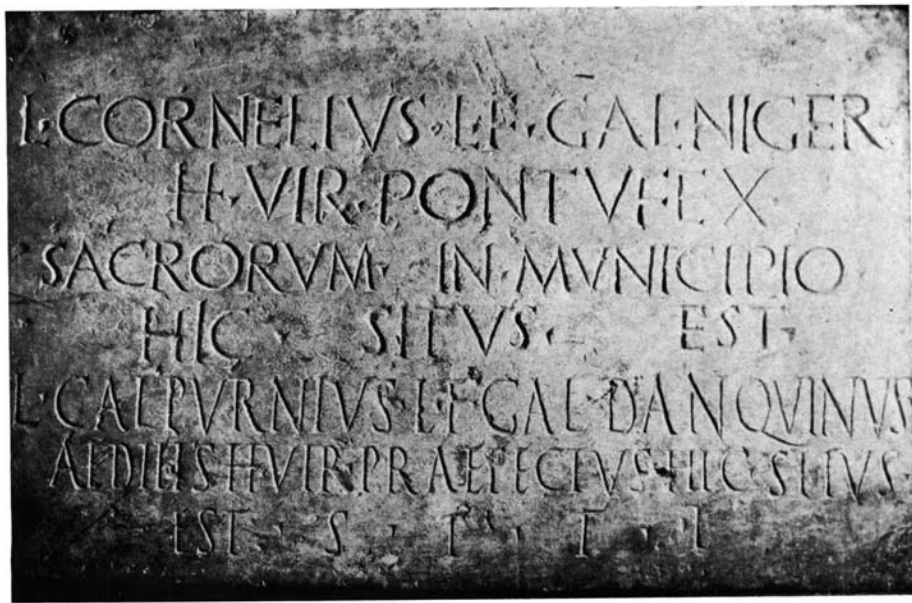 L·CORNELIVS·L·F·GAL·NIGER
II·VIR·PONTVFEX
SACRORVM· IN·MVNICIPIO
HIC · SITVS · EST·
L·CALPVRNIVS·L·F·GAL·DANQVINVS
AEDILIS·II·VIR·PRAEFECTVS·HIC·SITVS·
EST· S · T · T · L